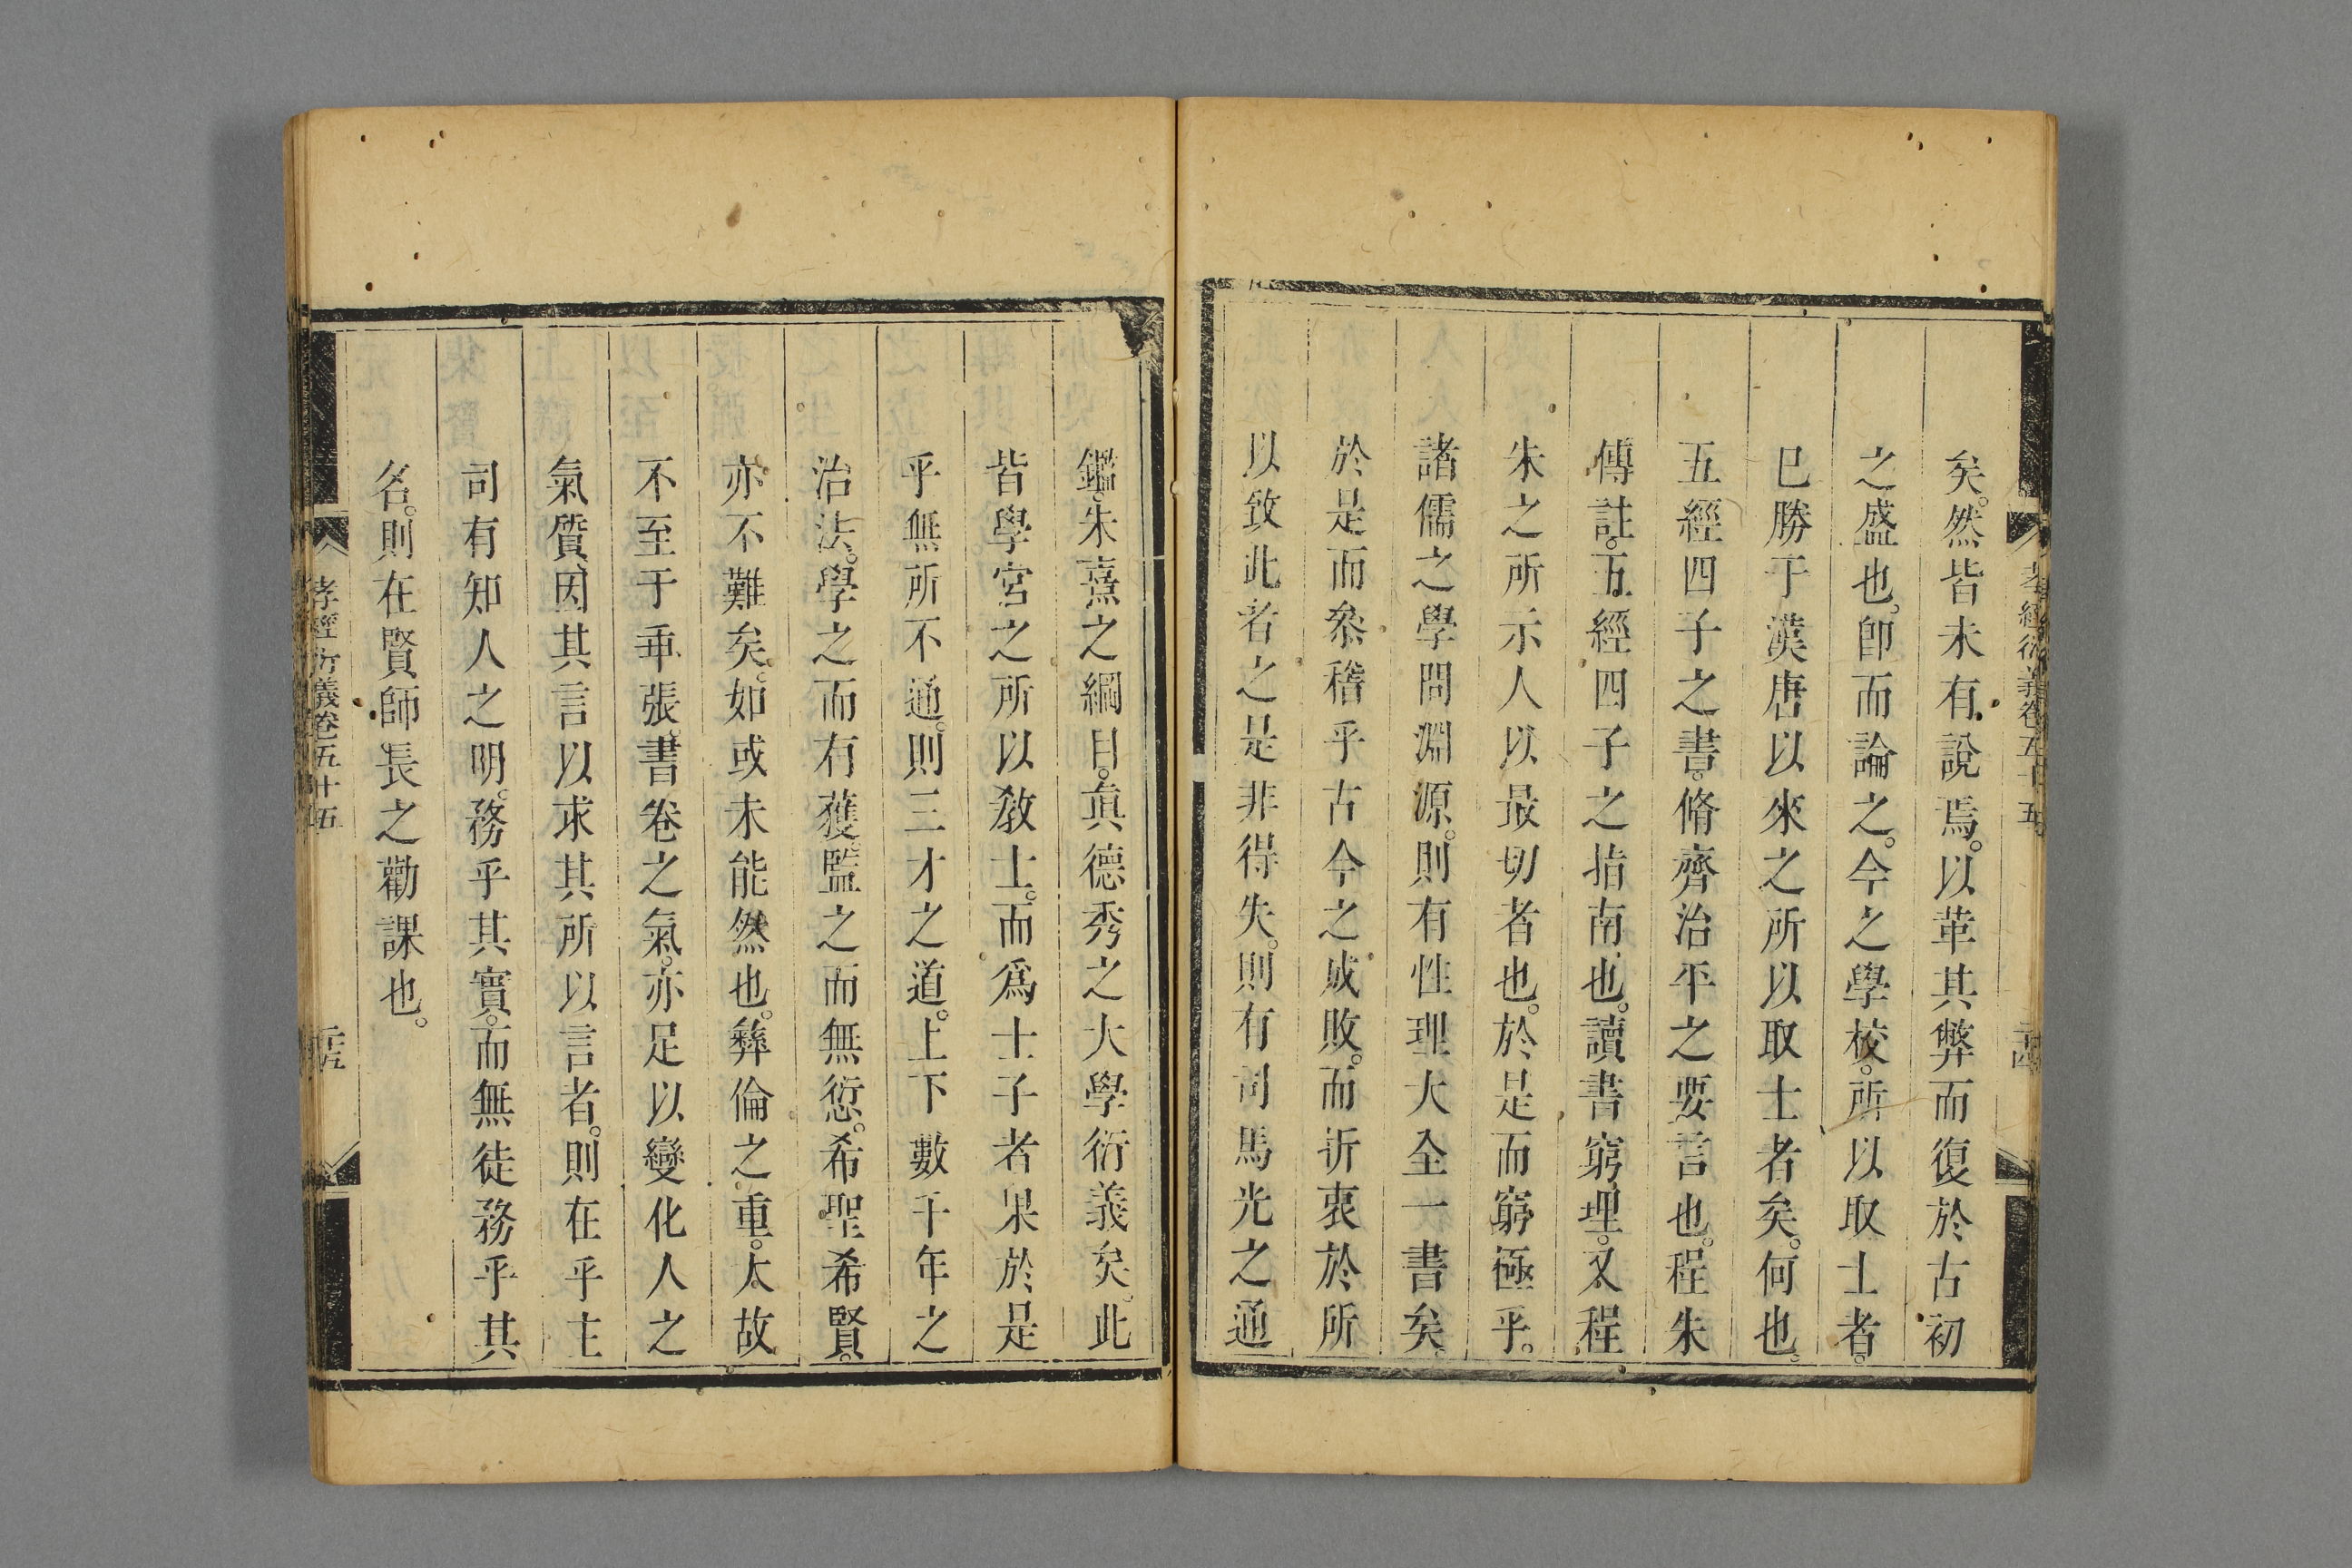 孝經衍義卷五十五
矣。然皆未有說焉。以革其弊而復於古初
之盛也。卽而論之。今之學校。所以取士者。
已勝于漢唐以來之所以取士者矣。何也。
五經四子之書。脩齊治平之要言也。程朱
傳註。五經四子之指南也。讀書窮理。又程
朱之所示人以最切者也。於是而窮極乎。
諸儒之學問淵源。則有性理大全一書矣。
於是而叅稽乎古今之成敗。而折衷於所
以致此者之是非得失。則有司馬光之通
鑑。朱熹之綱目。眞德秀之大學衍義矣。此
皆學宮之所以敎士。而爲士子者果於是
乎無所不通。則三才之道。上下數千年之
治法。學之而有獲。監之而無愆。希聖希賢。
亦不難矣。如或未能然也。彝倫之重。大故
不至于乖張。書卷之氣。亦足以變化人之
氣質。因其言以求其所以言者。則在乎主
司有知人之明。務乎其實。而無徒務乎其
名。則在賢師長之勸課也。
孝經衍義卷五十五